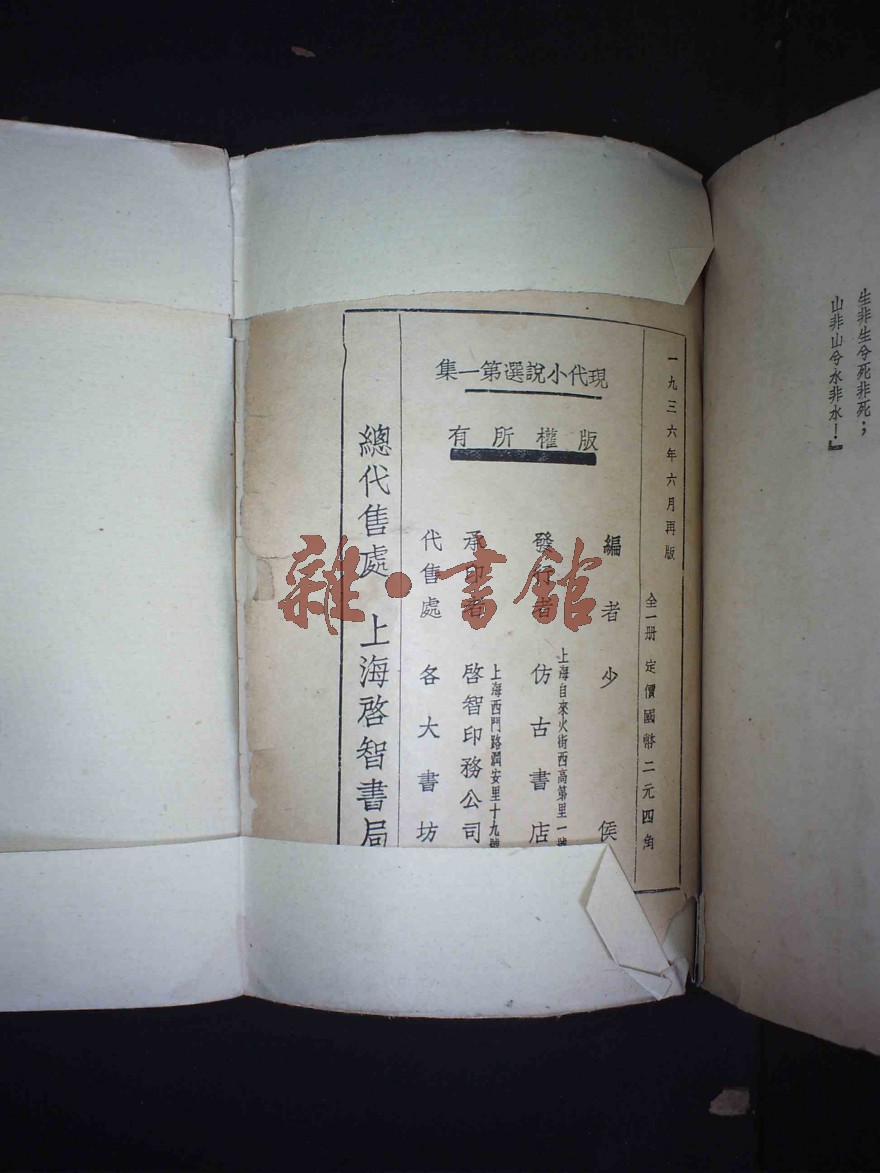 生非生兮死非死；
山非山兮水非水！』
一九三六年六月再版
全一册 定價國幣二元四角
現代小說選第一集
版權所有
編者少侯
上海自來火街西高第里一號
發行者 仿古書店
上海西門路潤安里十九號
承印者 啓智印務公司
代售處 各大書坊
總代售處 上海啓智書局
雜·書館